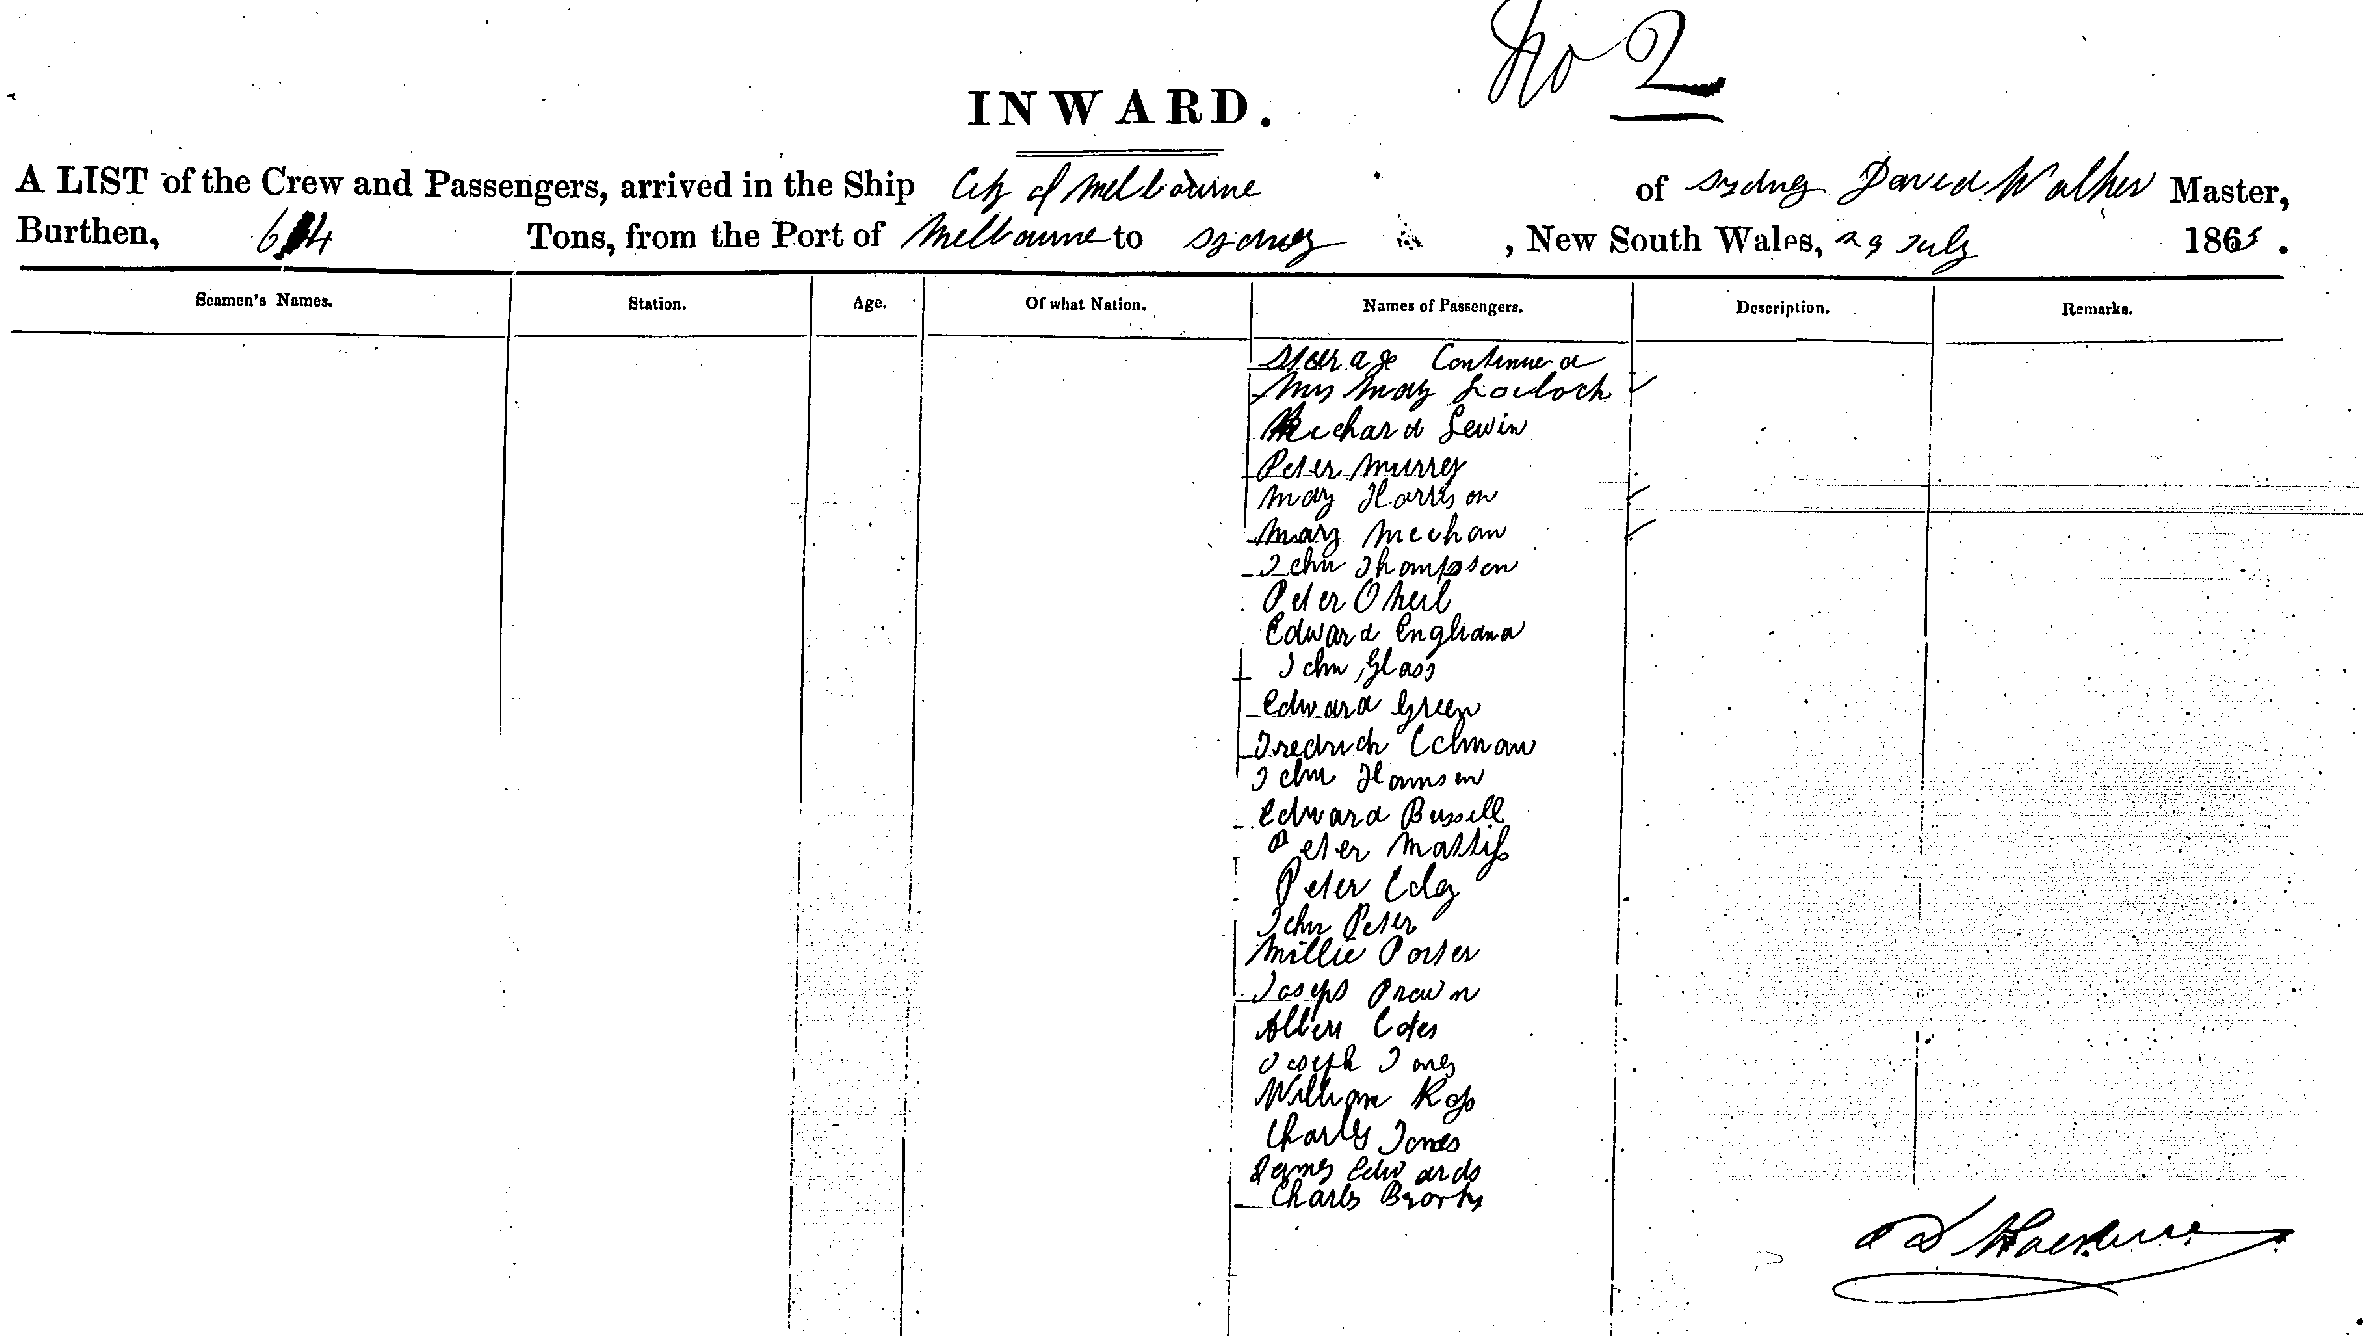 No 2
INWARD.
A LIST of the Crew and Passengers, arrived in the Ship City of Melbourne of Sydney David Walker Master,
Burthen, 614 Tons, from the Port of Melbourne to Sydney, New South Wales, 29 July 1865.
Seamen's Names. Station. Age. Of what Nation. Names of Passengers. Description. Remarks.
Steerage Continued
Mrs May
Richard Lewin
Peter Murrey
May Harrison
Mary Meehan
John Thompson
Peter O Neil
Edward England
John Glass
Edward Green
Fredrich Colman
John Hansen
Edward Bussell
Peter Mattiss
Peter Edey
John Peter
Millie Porter
Joseph Brown
Albert Cotes
Joseph Jones
William Ross
Charles Jones
James Edwards
Charles Brooks
D Walker